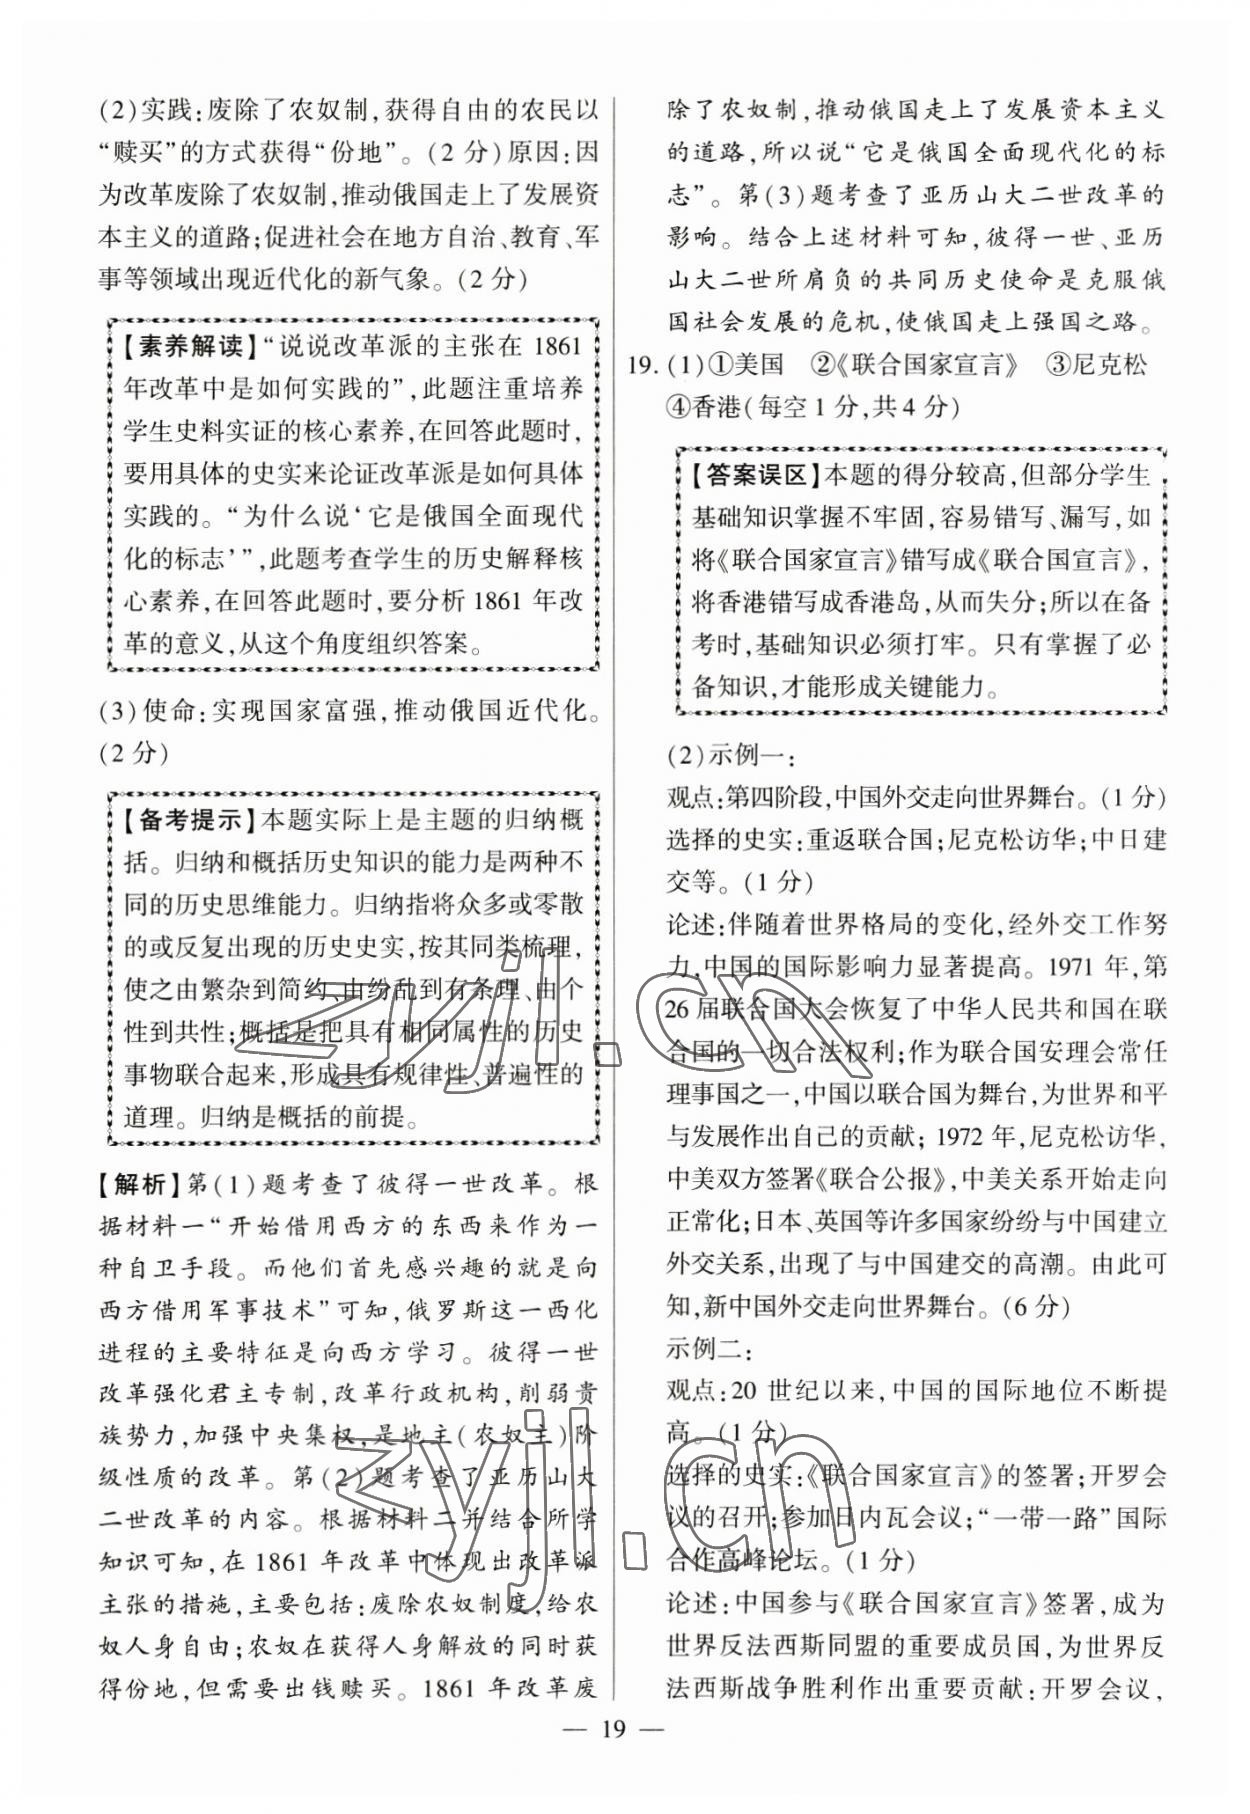 (2)实践:废除了农奴制,获得自由的农民以
“赎买”的方式获得“份地”。(2 分)原因:因
为改革废除了农奴制,推动俄国走上了发展资
本主义的道路;促进社会在地方自治、教育、军
事等领域出现近代化的新气象。(2 分)
【素养解读】“说说改革派的主张在 1861
年改革中是如何实践的”,此题注重培养
学生史料实证的核心素养,在回答此题时,
要用具体的史实来论证改革派是如何具体
实践的。“为什么说‘它是俄国全面现代
化的标志’”,此题考查学生的历史解释核
心素养,在回答此题时,要分析 1861 年改
革的意义,从这个角度组织答案。
(3)使命:实现国家富强,推动俄国近代化。
(2 分)
【备考提示】本题实际上是主题的归纳概
括。归纳和概括历史知识的能力是两种不
同的历史思维能力。归纳指将众多或零散
的或反复出现的历史史实,按其同类梳理,
使之由繁杂到简约、由纷乱到有条理、由个
性到共性;概括是把具有相同属性的历史
事物联合起来,形成具有规律性、普遍性的
道理。归纳是概括的前提。
【解析】第(1)题考查了彼得一世改革。根
据材料一“开始借用西方的东西来作为一
种自卫手段。而他们首先感兴趣的就是向
西方借用军事技术”可知,俄罗斯这一西化
进程的主要特征是向西方学习。彼得一世
改革强化君主专制,改革行政机构,削弱贵
族势力,加强中央集权,是地主(农奴主)阶
级性质的改革。第(2)题考查了亚历山大
二世改革的内容。根据材料二并结合所学
知识可知,在 1861 年改革中体现出改革派
主张的措施,主要包括:废除农奴制度,给农
奴人身自由;农奴在获得人身解放的同时获
得份地,但需要出钱赎买。1861 年改革废
除了农奴制,推动俄国走上了发展资本主义
的道路,所以说“它是俄国全面现代化的标
志”。第(3)题考查了亚历山大二世改革的
影响。结合上述材料可知,彼得一世、亚历
山大二世所肩负的共同历史使命是克服俄
国社会发展的危机,使俄国走上强国之路。
19. (1)①美国 ②《联合国家宣言》 ③尼克松
④香港(每空 1 分,共 4 分)
【答案误区】本题的得分较高,但部分学生
基础知识掌握不牢固,容易错写、漏写,如
将《联合国家宣言》错写成《联合国宣言》,
将香港错写成香港岛,从而失分;所以在备
考时,基础知识必须打牢。只有掌握了必
备知识,才能形成关键能力。
(2)示例一:
观点:第四阶段,中国外交走向世界舞台。(1 分)
选择的史实:重返联合国;尼克松访华;中日建
交等。(1 分)
论述:伴随着世界格局的变化,经外交工作努
力,中国的国际影响力显著提高。1971 年,第
26 届联合国大会恢复了中华人民共和国在联
合国的一切合法权利;作为联合国安理会常任
理事国之一,中国以联合国为舞台,为世界和平
与发展作出自己的贡献; 1972 年,尼克松访华,
中美双方签署《联合公报》,中美关系开始走向
正常化;日本、英国等许多国家纷纷与中国建立
外交关系,出现了与中国建交的高潮。由此可
知,新中国外交走向世界舞台。(6 分)
示例二:
观点:20 世纪以来,中国的国际地位不断提
高。(1 分)
选择的史实:《联合国家宣言》的签署;开罗会
议的召开;参加日内瓦会议;“一带一路”国际
合作高峰论坛。(1 分)
论述:中国参与《联合国家宣言》签署,成为
世界反法西斯同盟的重要成员国,为世界反
法西斯战争胜利作出重要贡献:开罗会议,
— 19 —
zyjl.cn
zyjl.cn